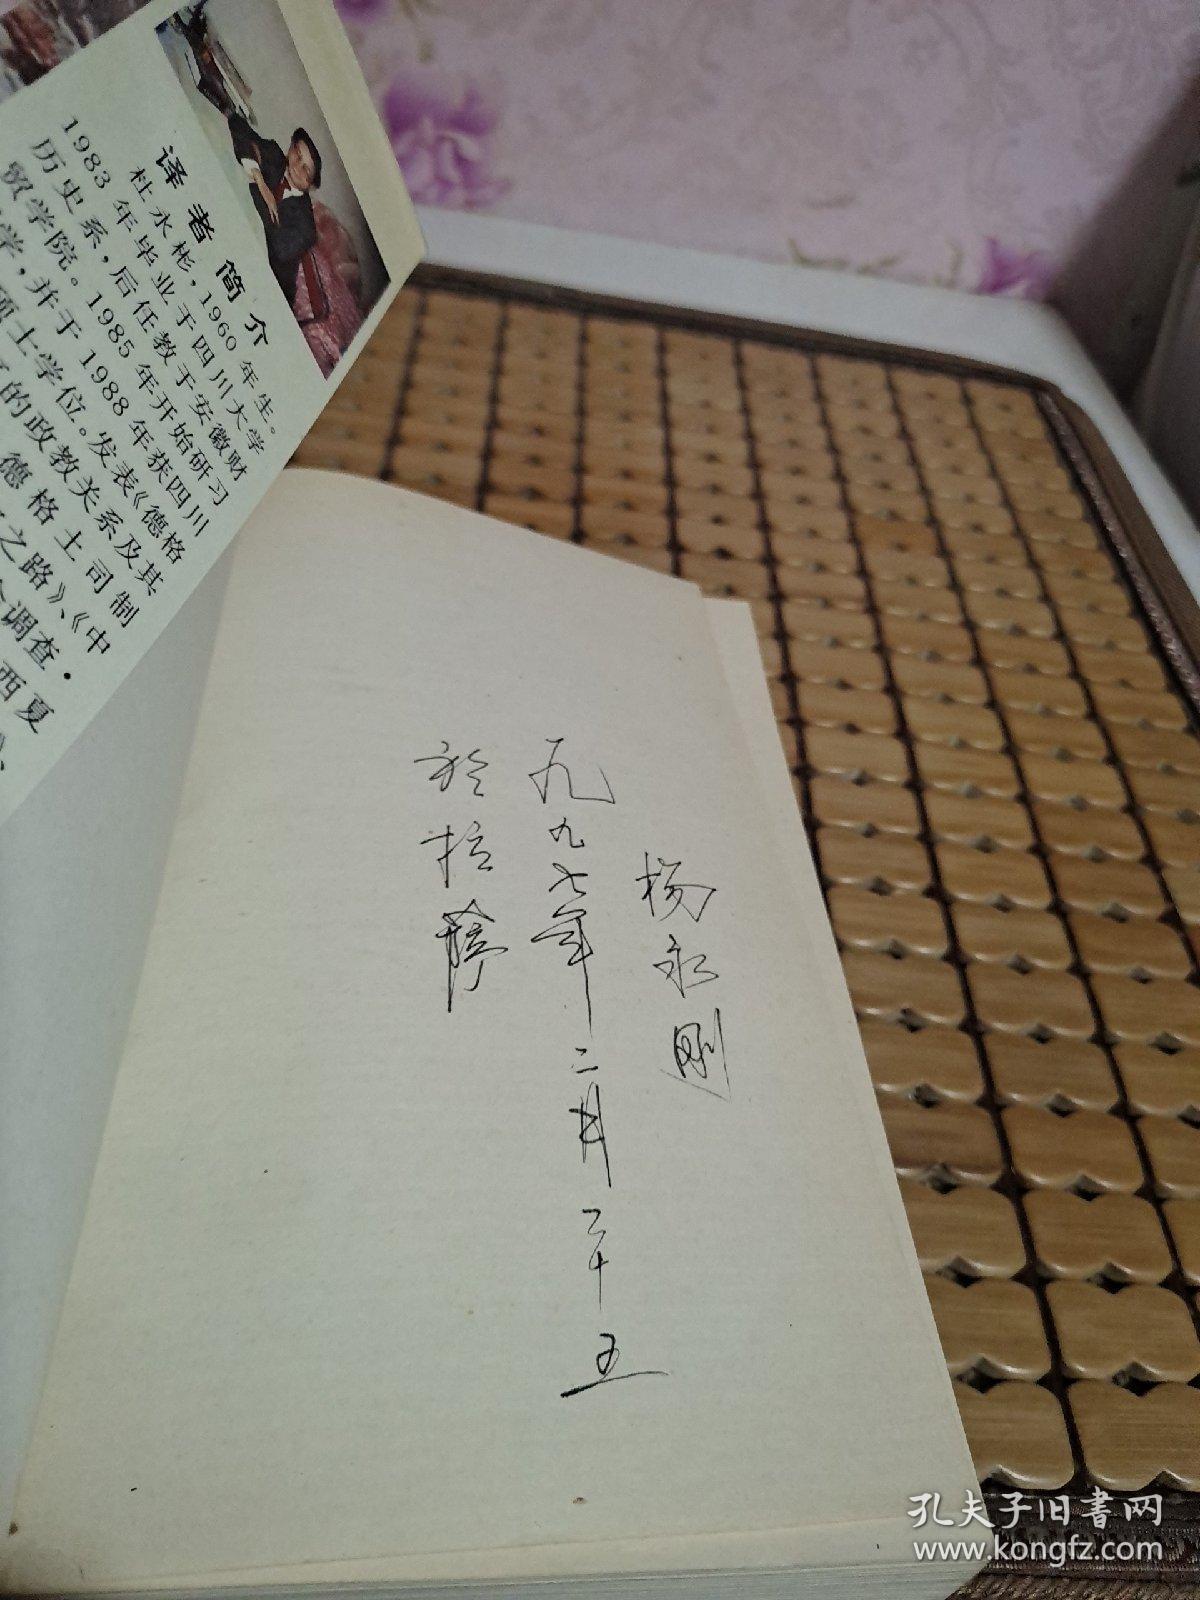 译者简介
杜永彬，1960年生。
1983年毕业于四川大学
历史系，后任教于安徽财
贸学院。1985年开始研习
学，并于1988年获四川
硕士学位。发表《德格
的政教关系及其
德格土司制
之路》、《中
调查·
西夏
》、
杨永刚
九九七年二月二十五
於拉萨
孔夫子旧书网
www.kongfz.com